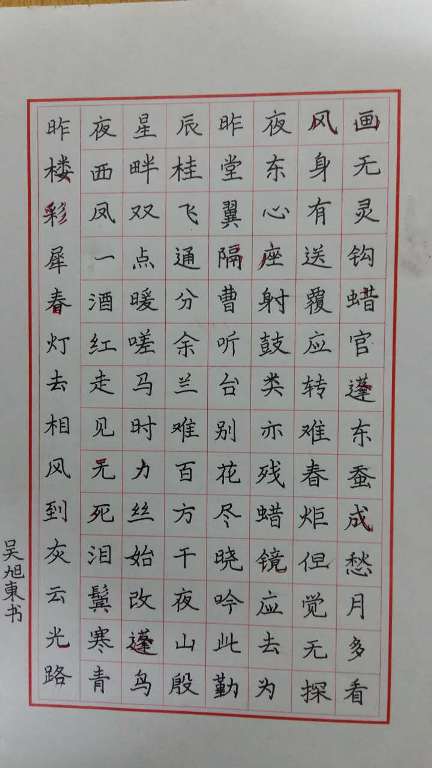 昨夜星辰昨夜风画
楼西畔桂堂东身无
彩凤双飞翼心有灵
犀一点通隔座送钩
春酒暖分曹射覆蜡
灯红嗟余听鼓应官
去走马兰台类转蓬
相见时难别亦难东
风无力百花残春蚕
到死丝方尽蜡炬成
灰泪始干晓镜但愁
云鬓改夜吟应觉月
光寒蓬山此去无多
路青鸟殷勤为探看
吴旭東书